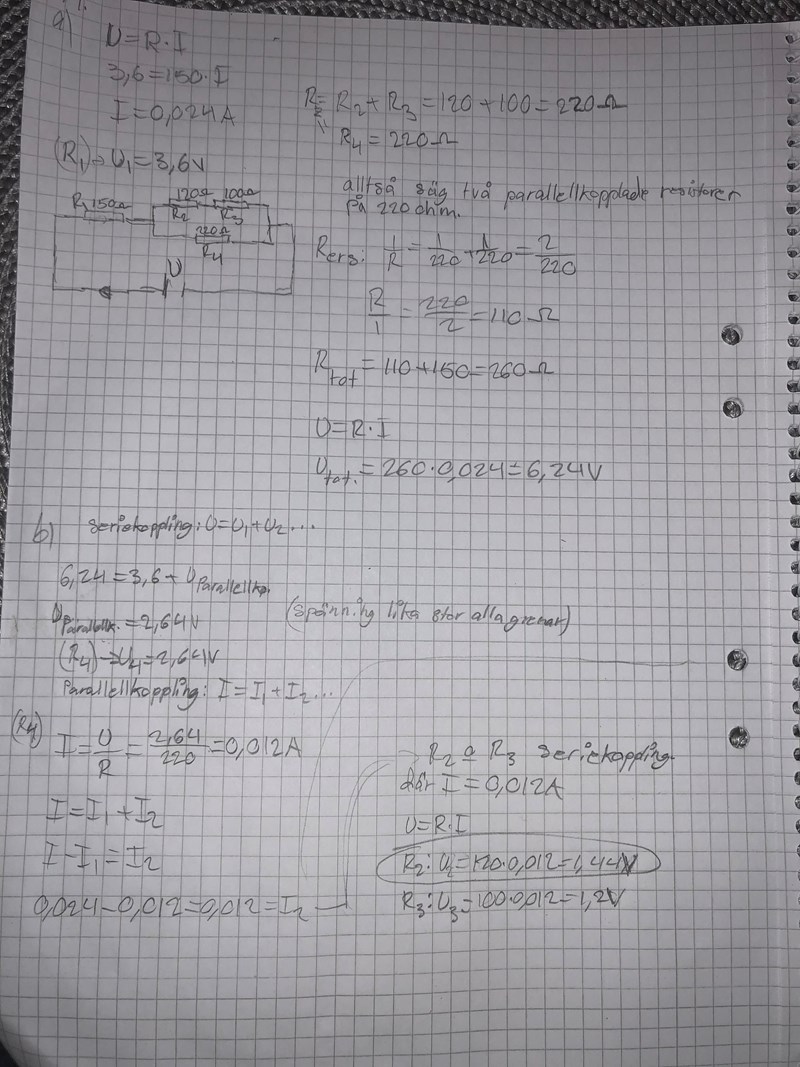 a)
U=R·I
3,6=150·I
I=0,024A
(R₁)→U₁=3,6V
R₁ 150Ω
120Ω 100Ω
R₂ R₃
220Ω
R₄
U
R₂+R₃=120+100=220Ω
R₄=220Ω
alltså säg två parallellkopplade resistorer
på 220 ohm.
Rers: 1/R=1/220+1/220=2/220
R/1=220/2=110Ω
Rtot=110+150=260Ω
U=R·I
Utot.=260·0,024=6,24V
b) seriekoppling: U=U₁+U₂...
6,24=3,6+UParallellkp.
UParallellk.=2,64V (spänning lika stor alla grenar)
(R₄)→U₄=2,64V
Parallellkoppling: I=I₁+I₂...
(R₄) I=U/R=2,64/220=0,012A
I=I₁+I₂
I-I₁=I₂
0,024-0,012=0,012=I₂
R₂ o R₃ seriekoppling
där I=0,012A
U=R·I
R₂:U₂=120·0,012=1,44V
R₃:U₃=100·0,012=1,2V